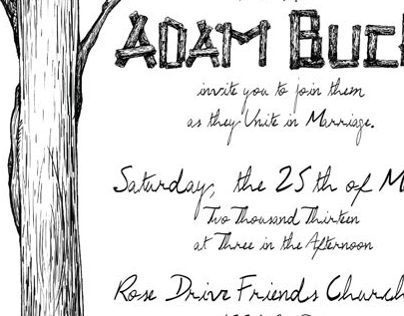 ADAM BUC
invite you to join them
as they Unite in Marriage.
Saturday, the 25th of M
Two Thousand Thirteen
at Three in the Afternoon
Rose Drive Friends Church